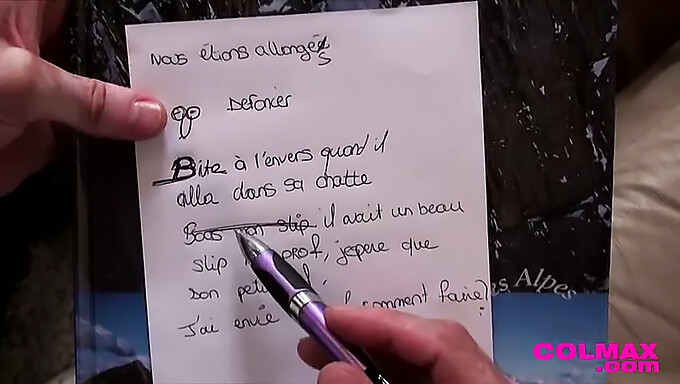 Nous étions allongés
S
Defoncer
Bite à l'envers quand il
alla dans sa chatte
il avait un beau
slip prof, j'espere que
son petit
J'ai envie comment faire?
es Alpes
COLMAX
.com